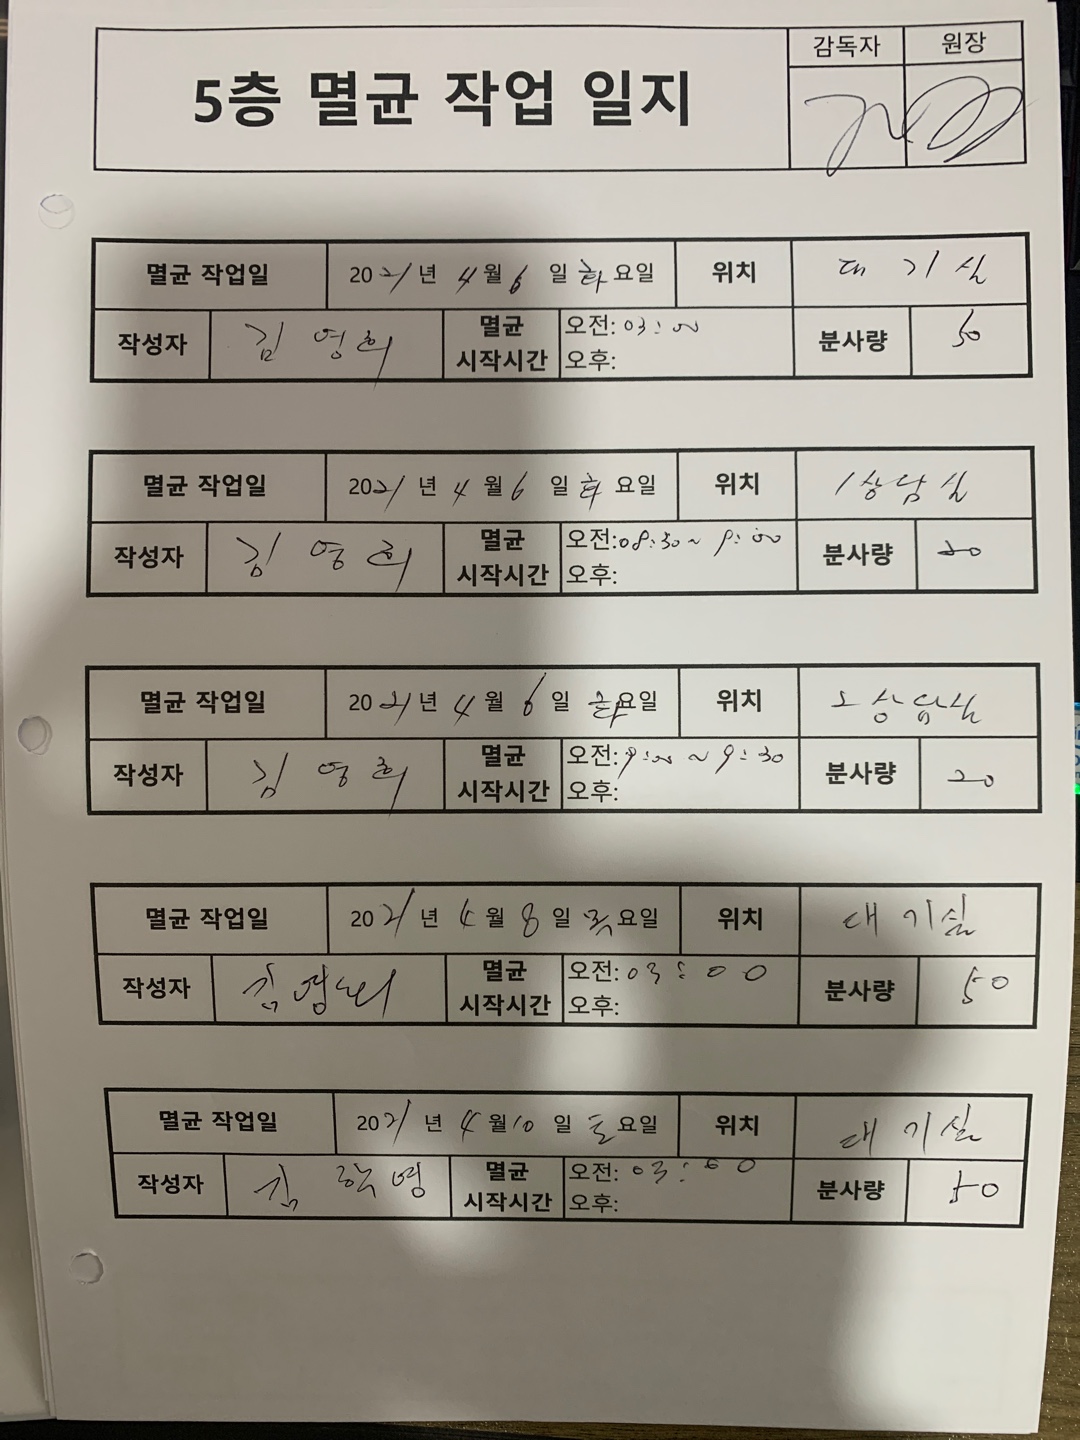 감독자 원장
5층 멸균 작업 일지
멸균 작업일 2021년 4월 6일 화요일 위치 대기실
작성자 김영희 멸균 시작시간 오전: 03:00 분사량 50
오후:
멸균 작업일 2021년 4월 6일 화요일 위치 1상담실
작성자 김영희 멸균 시작시간 오전: 08:30 ~ 9:00 분사량 20
오후:
멸균 작업일 2021년 4월 6일 화요일 위치 2상담실
작성자 김영희 멸균 시작시간 오전: 9:00 ~ 9:30 분사량 20
오후:
멸균 작업일 2021년 4월 8일 목요일 위치 대기실
작성자 멸균 시작시간 오전: 03:00 분사량 50
오후:
멸균 작업일 2021년 4월 10일 토요일 위치 대기실
작성자 김학영 멸균 시작시간 오전: 03:00 분사량 50
오후: